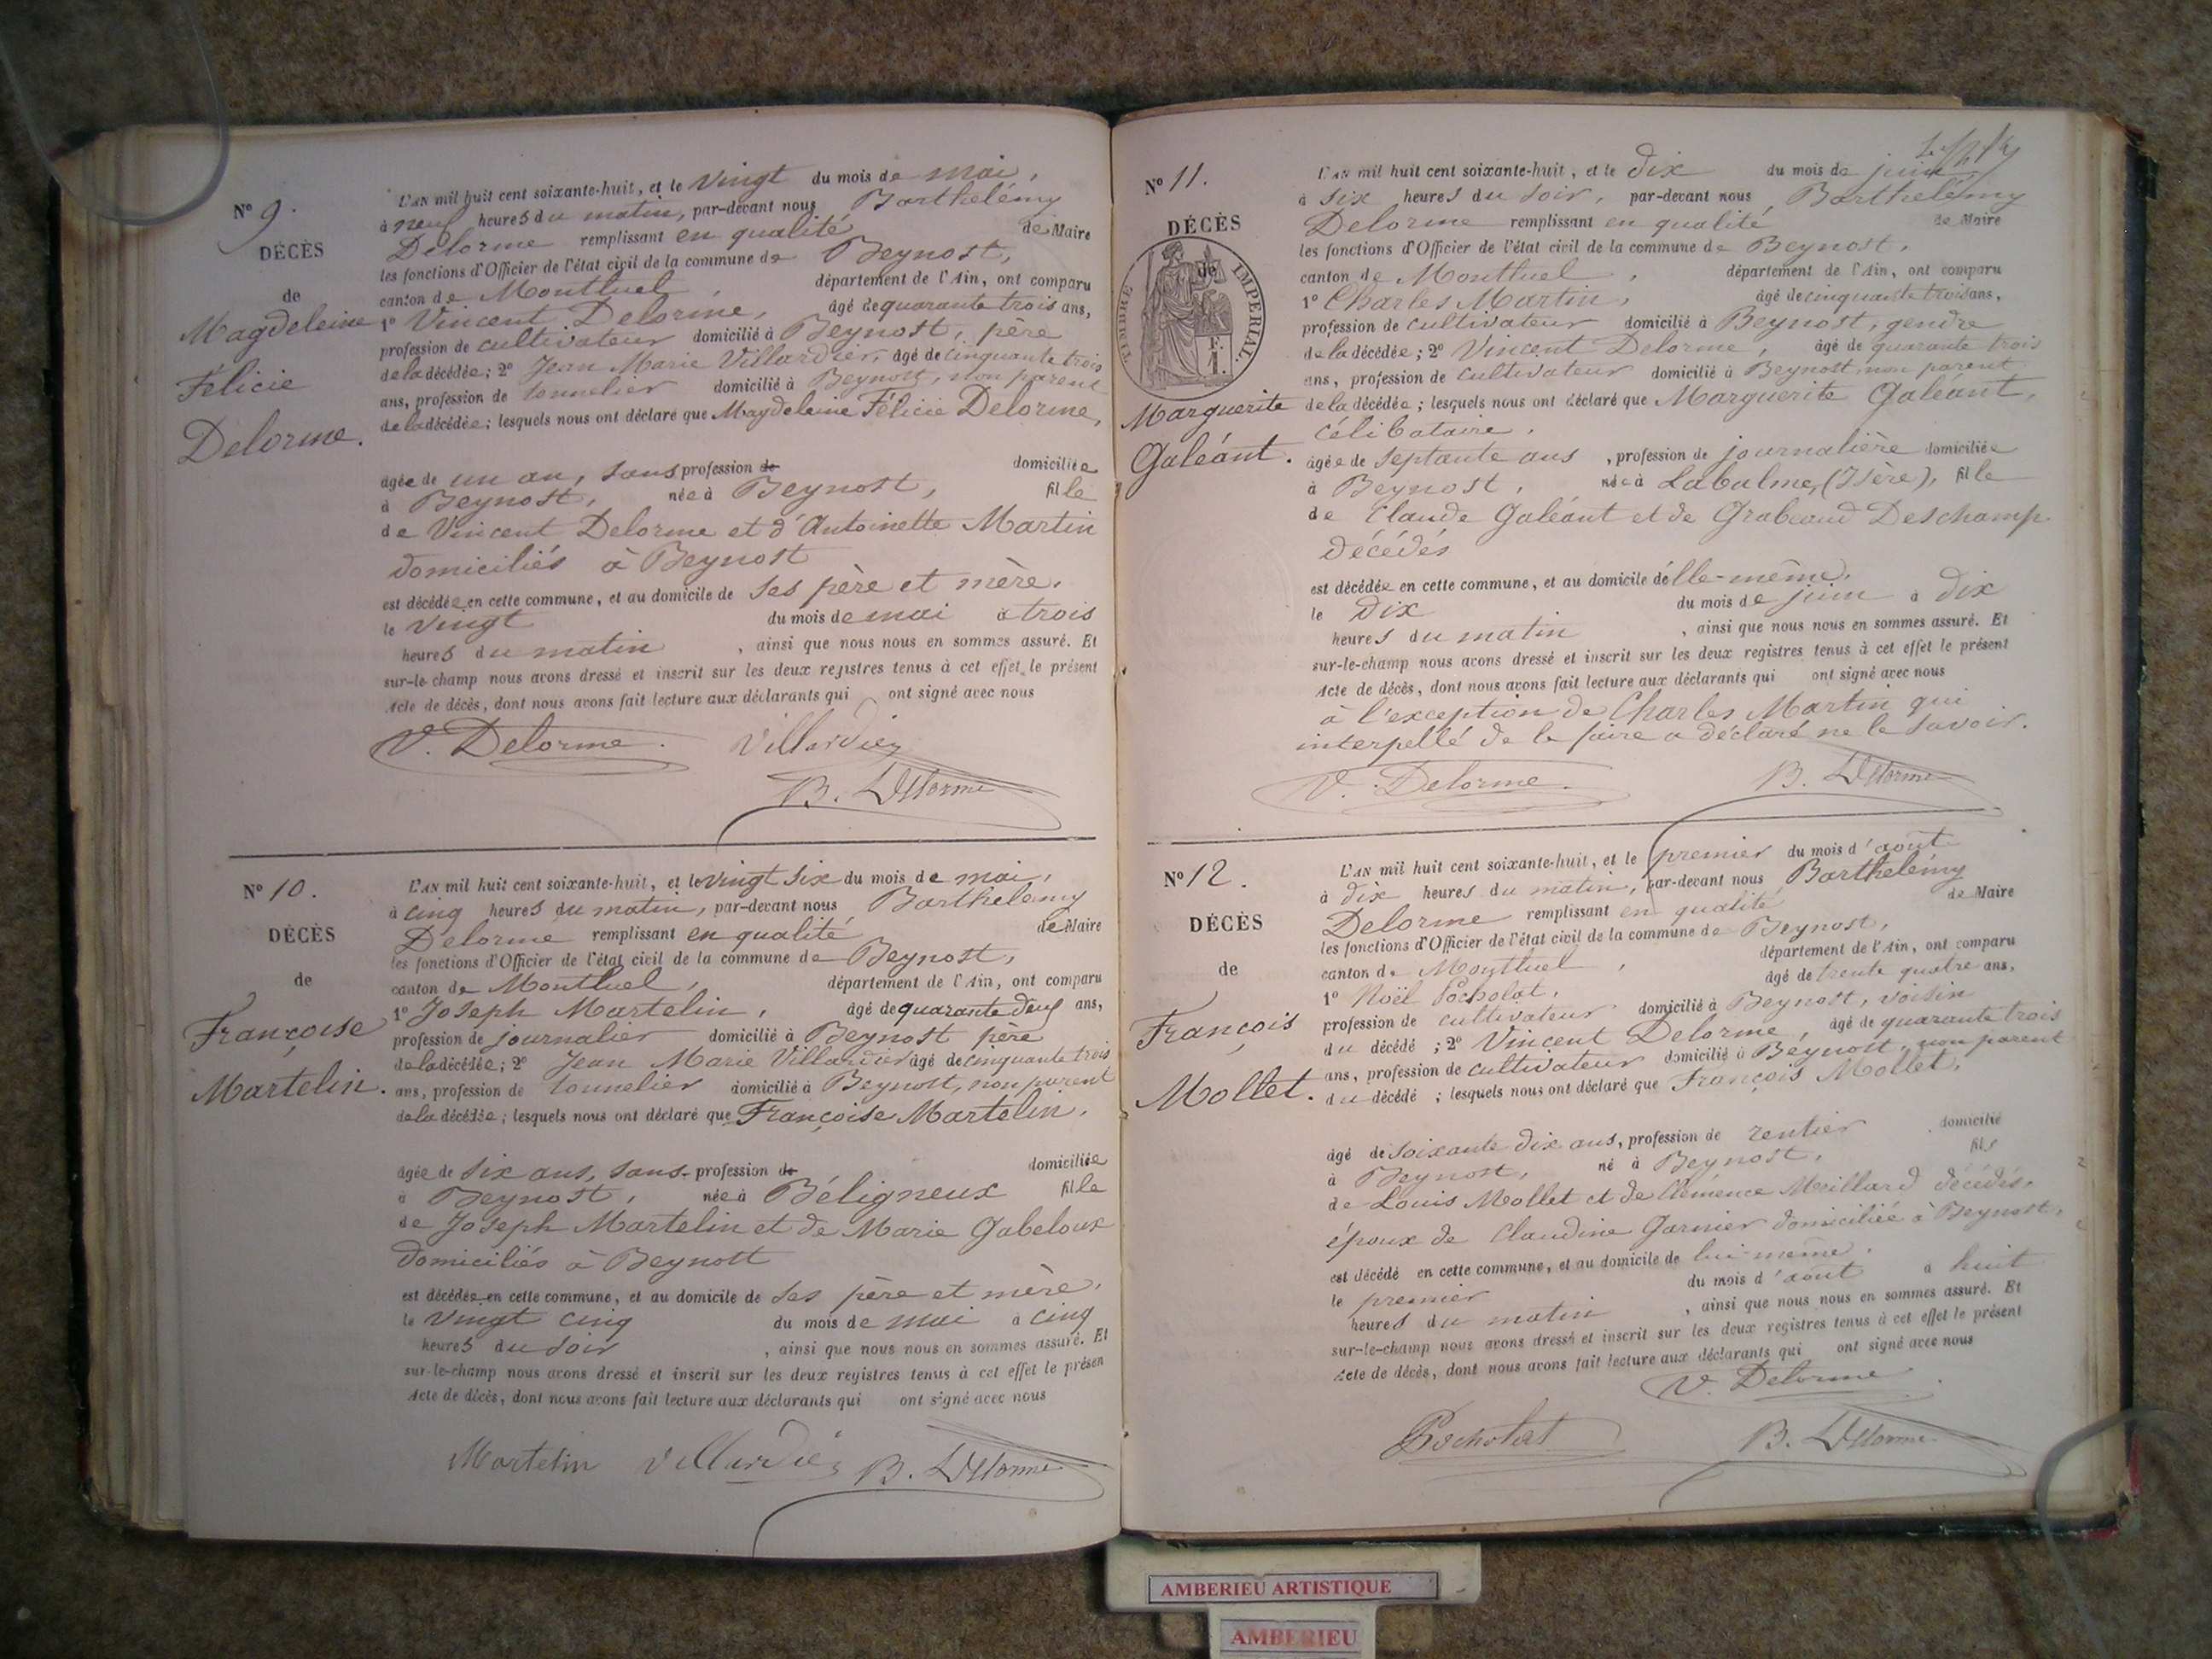 N° 9.
DÉCÈS
de
Magdeleine
Félicie
Delorme.
L'AN mil huit cent soixante-huit, et le vingt du mois de mai,
à neuf heures du matin, par-devant nous Barthelémy
Delorme remplissant en qualité de Maire
les fonctions d'Officier de l'état civil de la commune de Beynost,
canton de Montluel, département de l'Ain, ont comparu
1° Vincent Delorme, âgé de quarante trois ans,
profession de cultivateur domicilié à Beynost, père
de la décédée; 2° Jean Marie Villardier, âgé de cinquante trois
ans, profession de tonnelier domicilié à Beynost, non parent
de la décédée; lesquels nous ont déclaré que Magdeleine Félicie Delorme,
âgée de un an, sans profession de domiciliée
à Beynost, née à Beynost, fille
de Vincent Delorme et d'Antoinette Martin
domiciliés à Beynost
est décédée en cette commune, et au domicile de ses père et mère.
le vingt du mois de mai à trois
heures du matin, ainsi que nous nous en sommes assuré. Et
sur-le-champ nous avons dressé et inscrit sur les deux registres tenus à cet effet le présent
Acte de décès, dont nous avons fait lecture aux déclarants qui ont signé avec nous
V. Delorme. Villardier
B. Delorme
N° 10.
DÉCÈS
de
Françoise
Martelin.
L'AN mil huit cent soixante-huit, et le vingt six du mois de mai,
à cinq heures du matin, par-devant nous Barthelemy
Delorme remplissant en qualité de Maire
les fonctions d'Officier de l'état civil de la commune de Beynost,
canton de Montluel, département de l'Ain, ont comparu
1° Joseph Martelin, âgé de quarante deux ans,
profession de journalier domicilié à Beynost père
de la décédée; 2° Jean Marie Villardier âgé de cinquante trois
ans, profession de tonnelier domicilié à Beynost, non parent
de la décédée; lesquels nous ont déclaré que Françoise Martelin,
âgée de six ans, sans profession de domiciliée
à Beynost, née à Béligneux fille
de Joseph Martelin et de Marie Gabeloux
domiciliés à Beynost
est décédée en cette commune, et au domicile de ses père et mère.
le vingt cinq du mois de mai à cinq
heures du soir, ainsi que nous nous en sommes assuré. Et
sur-le-champ nous avons dressé et inscrit sur les deux registres tenus à cet effet le présen
Acte de décès, dont nous avons fait lecture aux déclarants qui ont signé avec nous
Martelin Villardier B. Delorme
N° 11.
DÉCÈS
de
TIMBRE IMPERIAL.
F.
1.
Marguerite
Galéant.
L'AN mil huit cent soixante-huit, et le dix du mois de juin
à six heures du soir, par-devant nous Barthelémy
Delorme remplissant en qualité de Maire
les fonctions d'Officier de l'état civil de la commune de Beynost,
canton de Montluel, département de l'Ain, ont comparu
1° Charles Martin, âgé de cinquante trois ans,
profession de cultivateur domicilié à Beynost, gendre
de la décédée; 2° Vincent Delorme, âgé de quarante trois
ans, profession de cultivateur domicilié à Beynost, non parent
de la décédée; lesquels nous ont déclaré que Marguerite Galéant,
célibataire,
âgée de septante ans, profession de journalière domiciliée
à Beynost, née à Labalme, (Isère), fille
de Claude Galéant et de Deschamp
décédés
est décédée en cette commune, et au domicile d'elle-même.
le dix du mois de juin à dix
heures du matin, ainsi que nous nous en sommes assuré. Et
sur-le-champ nous avons dressé et inscrit sur les deux registres tenus à cet effet le présent
Acte de décès, dont nous avons fait lecture aux déclarants qui ont signé avec nous
à l'exception de Charles Martin qui
interpellé de le faire a déclaré ne le savoir.
V. Delorme. B. Delorme
N° 12.
DÉCÈS
de
François
Mollet.
L'AN mil huit cent soixante-huit, et le premier du mois d'août
à dix heures du matin, par-devant nous Barthelémy
Delorme remplissant en qualité de Maire
les fonctions d'Officier de l'état civil de la commune de Beynost,
canton de Montluel, département de l'Ain, ont comparu
1° Noël Pocholat, âgé de trente quatre ans,
profession de cultivateur domicilié à Beynost, voisin
du décédé; 2° Vincent Delorme, âgé de quarante trois
ans, profession de cultivateur domicilié à Beynost, non parent
du décédé; lesquels nous ont déclaré que François Mollet,
âgé de soixante dix ans, profession de rentier domicilié
à Beynost, né à Beynost, fils
de Louis Mollet et de Clémence Meillard décédés,
époux de Claudine Garnier domiciliée à Beynost,
est décédé en cette commune, et au domicile de lui-même.
le premier du mois d'août à huit
heures du matin, ainsi que nous nous en sommes assuré. Et
sur-le-champ nous avons dressé et inscrit sur les deux registres tenus à cet effet le présent
Acte de décès, dont nous avons fait lecture aux déclarants qui ont signé avec nous
V. Delorme
Pocholat B. Delorme
AMBERIEU ARTISTIQUE
AMBERIEU